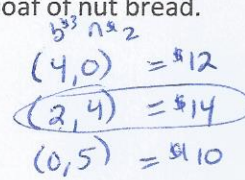 oaf of nut bread.
b $3 n $ 2
(4,0) = $12
(2,4) = $14
(0,5) = $10